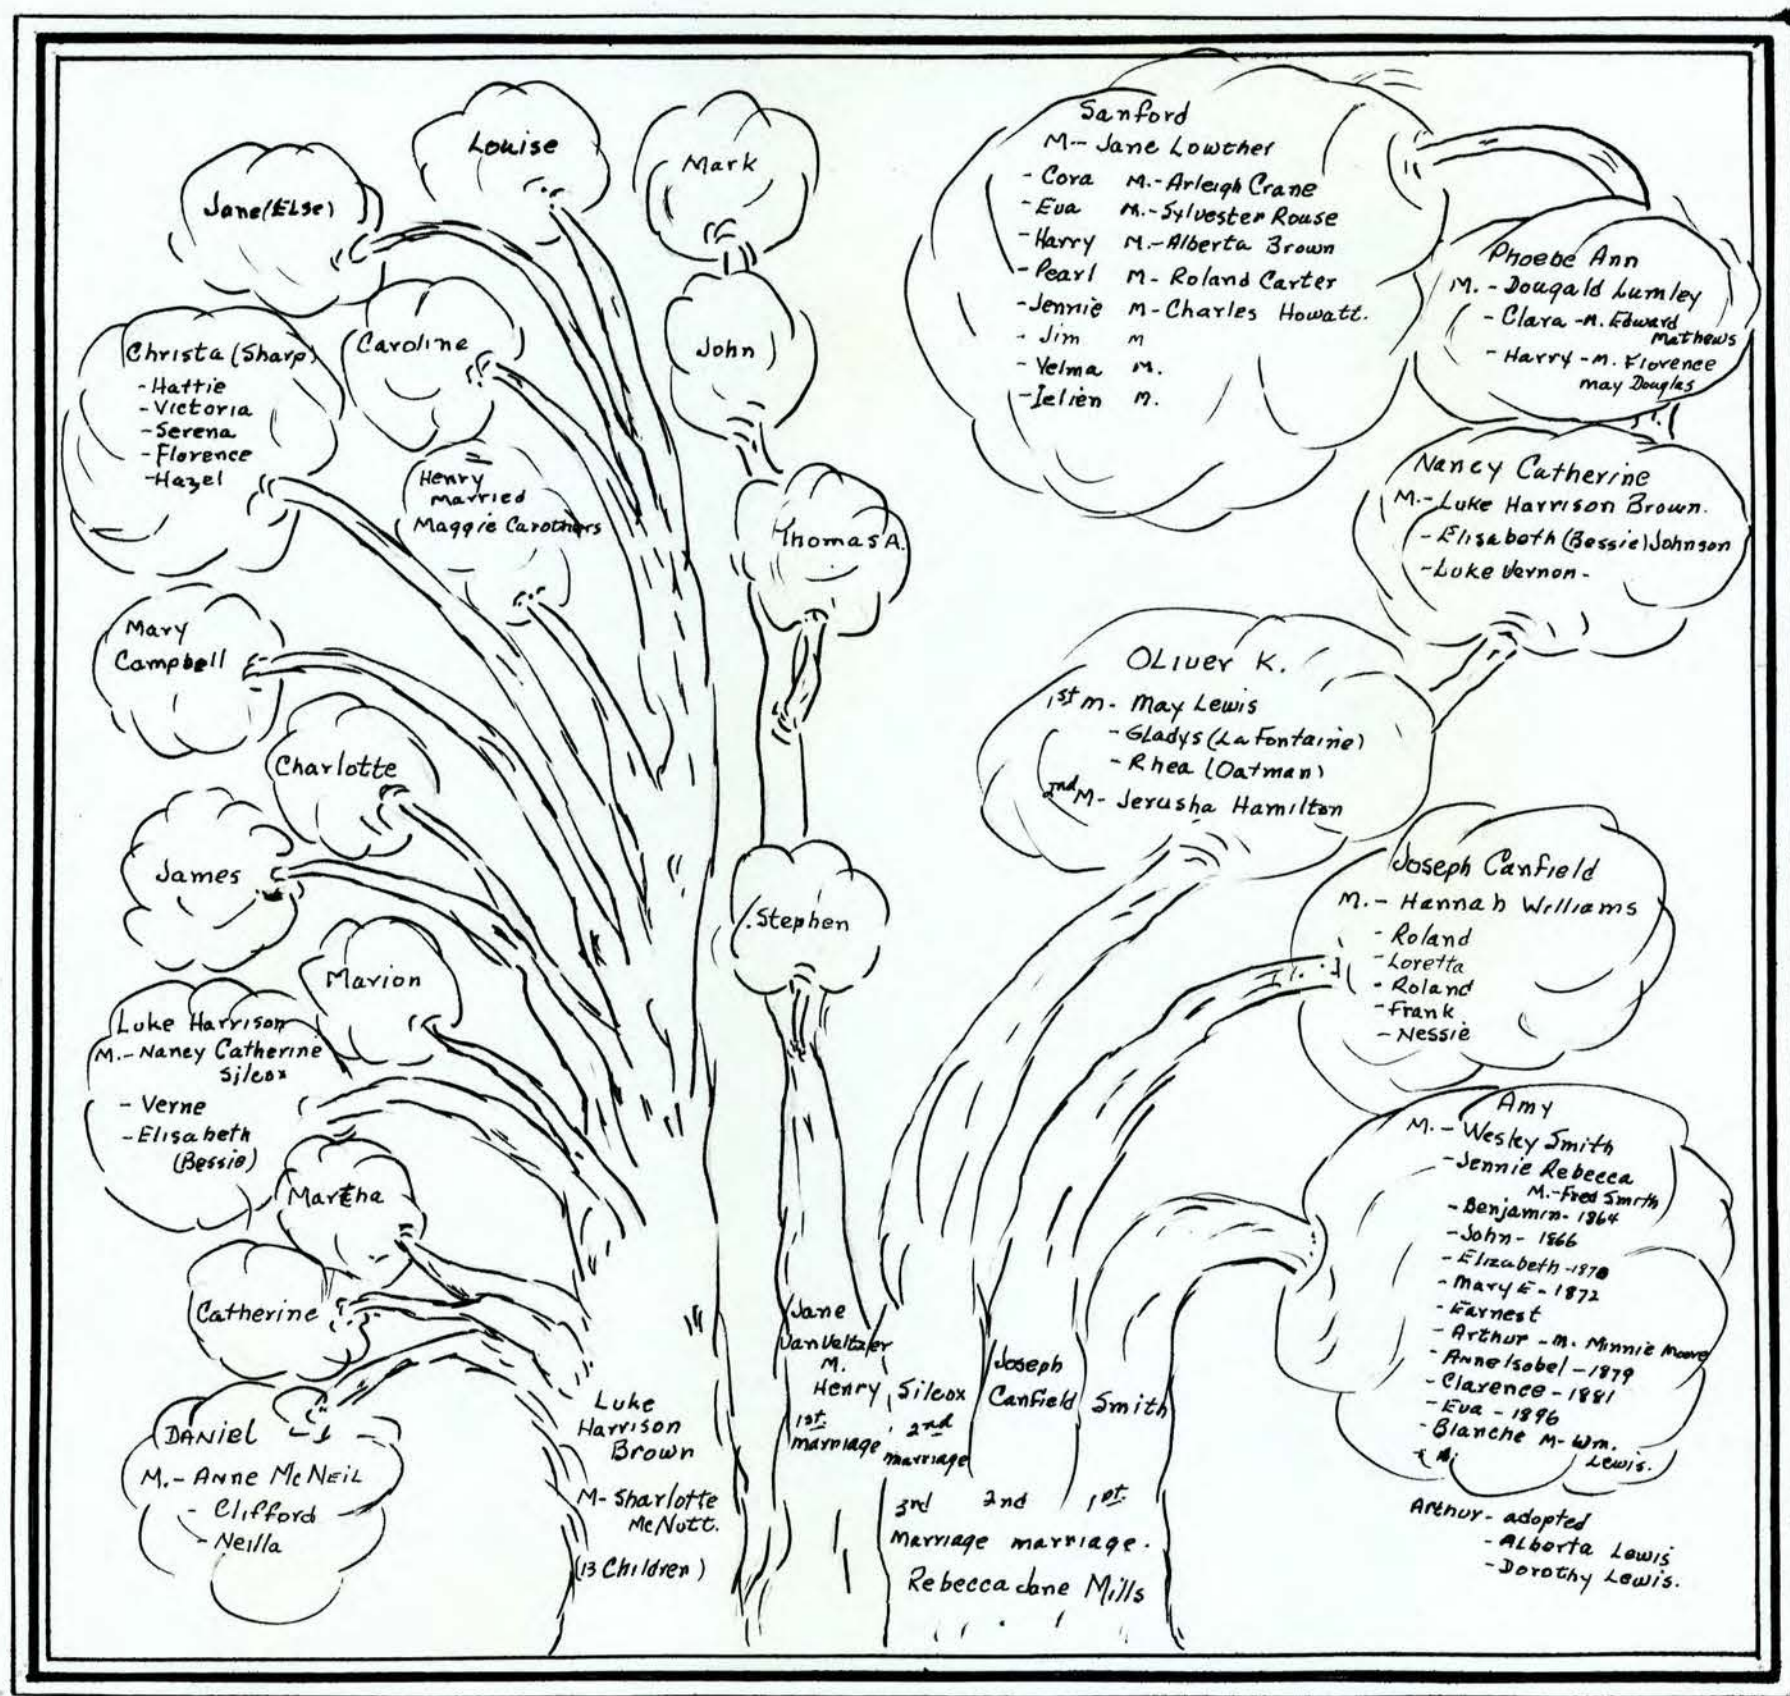 Louise
Mark
Jane (Else)
John
Caroline
Christa (Sharp)
- Hattie
- Victoria
- Serena
- Florence
- Hazel
Henry
married
Maggie Carothers
Thomas A.
Mary
Campbell
Charlotte
James
Stephen
Marion
Luke Harrison
M.- Nancy Catherine
Silcox
- Verne
- Elisabeth
(Bessie)
Martha
Catherine
DANIEL
M.- ANNE McNEIL
- Clifford
- Neilla
Luke
Harrison
Brown
M- Sharlotte
McNutt.
(13 Children)
Jane
VanVeltzler
M.
Henry
1st.
marriage
Silcox
2nd
marriage
Joseph
Canfield
Smith
3rd 2nd 1st.
Marriage marriage.
Rebecca Jane Mills
Sanford
M- Jane Lowther
- Cora M.- Arleigh Crane
- Eva M.- Sylvester Rouse
- Harry M.- Alberta Brown
- Pearl M- Roland Carter
- Jennie M- Charles Howatt.
- Jim M
- Velma M.
- Ielien M.
Phoebe Ann
M. - Dougald Lumley
- Clara - M. Edward
Mathews
- Harry - M. Florence
May Douglas
Nancy Catherine
M.- Luke Harrison Brown.
- Elisabeth (Bessie) Johnson
- Luke Vernon -
OLiver K.
1st M- May Lewis
- Gladys (La Fontaine)
- Rhea (Oatman)
2nd M- Jerusha Hamilton
Joseph Canfield
M. - Hannah Williams
- Roland
- Loretta
- Roland
- Frank
- Nessie
Amy
M. - Wesley Smith
- Jennie Rebecca
M.- Fred Smith
- Benjamin - 1864
- John - 1866
- Elizabeth - 1870
- Mary E - 1872
- Earnest
- Arthur - M. Minnie Moore
- Anne Isobel - 1879
- Clarence - 1881
- Eva - 1896
- Blanche M- Wm.
Lewis.
Arthur - adopted
- Alberta Lewis
- Dorothy Lewis.